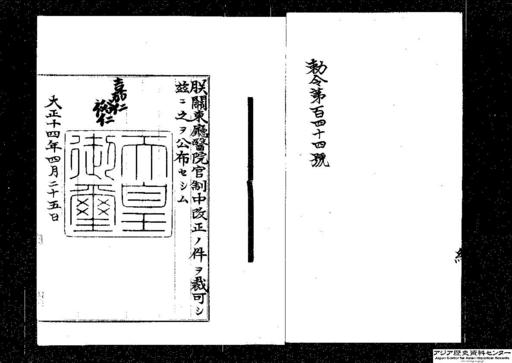 勅令第百四十四號
朕關東廳醫院官制中改正ノ件ヲ裁可シ
茲ニ之ヲ公布セシム
嘉仁
裕仁
天皇
御璽
大正十四年四月二十五日
アジア歴史資料センター
Japan Center for Asian Historical Records